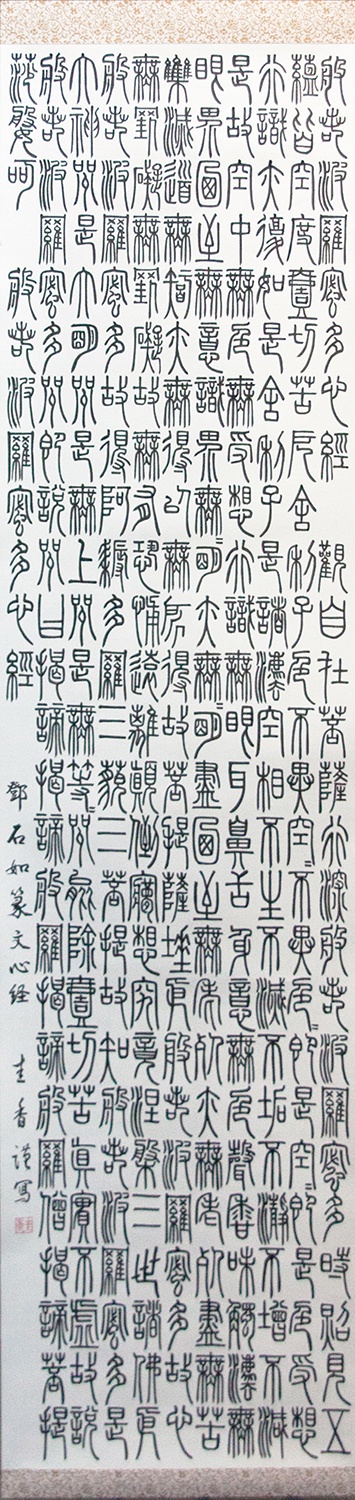 般若波羅蜜多心經　觀自在菩薩行深般若波羅蜜多時照見五
蘊皆空度壹切苦厄舍利子色不異空〻不異色〻即是空〻即是色受想
行識亦復如是舍利子是諸灋空相不生不滅不垢不瀞不增不減
是故空中無色無受想行識無眼耳鼻舌身意無色聲香味觸灋無
眼界卥至無意識界無明〻亦無明〻盡卥至無老死亦無老死盡無苦
集滅道無智亦無得以無所得故菩提薩埵依般若波羅蜜多故心
無罣礙無罣礙故無有恐怖遠離顛倒夢想究竟涅槃三世諸佛依
般若波羅蜜多故得阿耨多羅三藐三菩提故知般若波羅蜜多是
大神咒是大明咒是無上咒是無等〻咒能除壹切苦真實不虛故說
般若波羅蜜多咒即說咒曰揭諦揭諦般羅揭諦般羅僧揭諦菩提
莎婆呵　般若波羅蜜多心經
鄧石如篆文心経　圭香謹寫